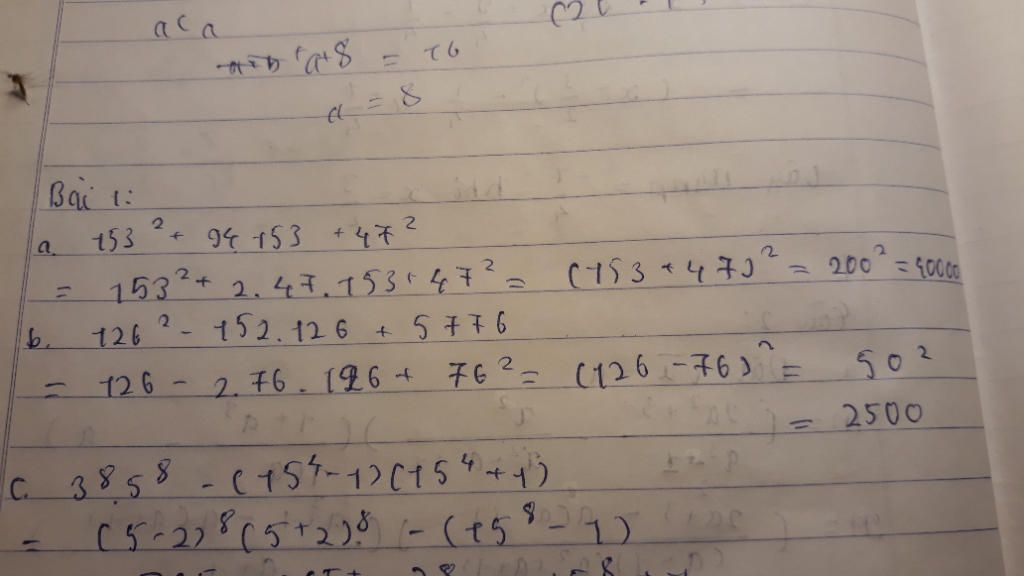 a < a
a+8 = 16
a = 8
Bài 1:
a. 153² + 94.153 + 47²
= 153² + 2.47.153 + 47² = (153 + 47)² = 200² = 40000
b. 126² - 152.126 + 5776
= 126 - 2.76.126 + 76² = (126 - 76)² = 50²
= 2500
c. 3⁸.5⁸ - (15⁴-1)(15⁴+1)
= (5-2)⁸(5+2)⁸ - (15⁸ - 1)